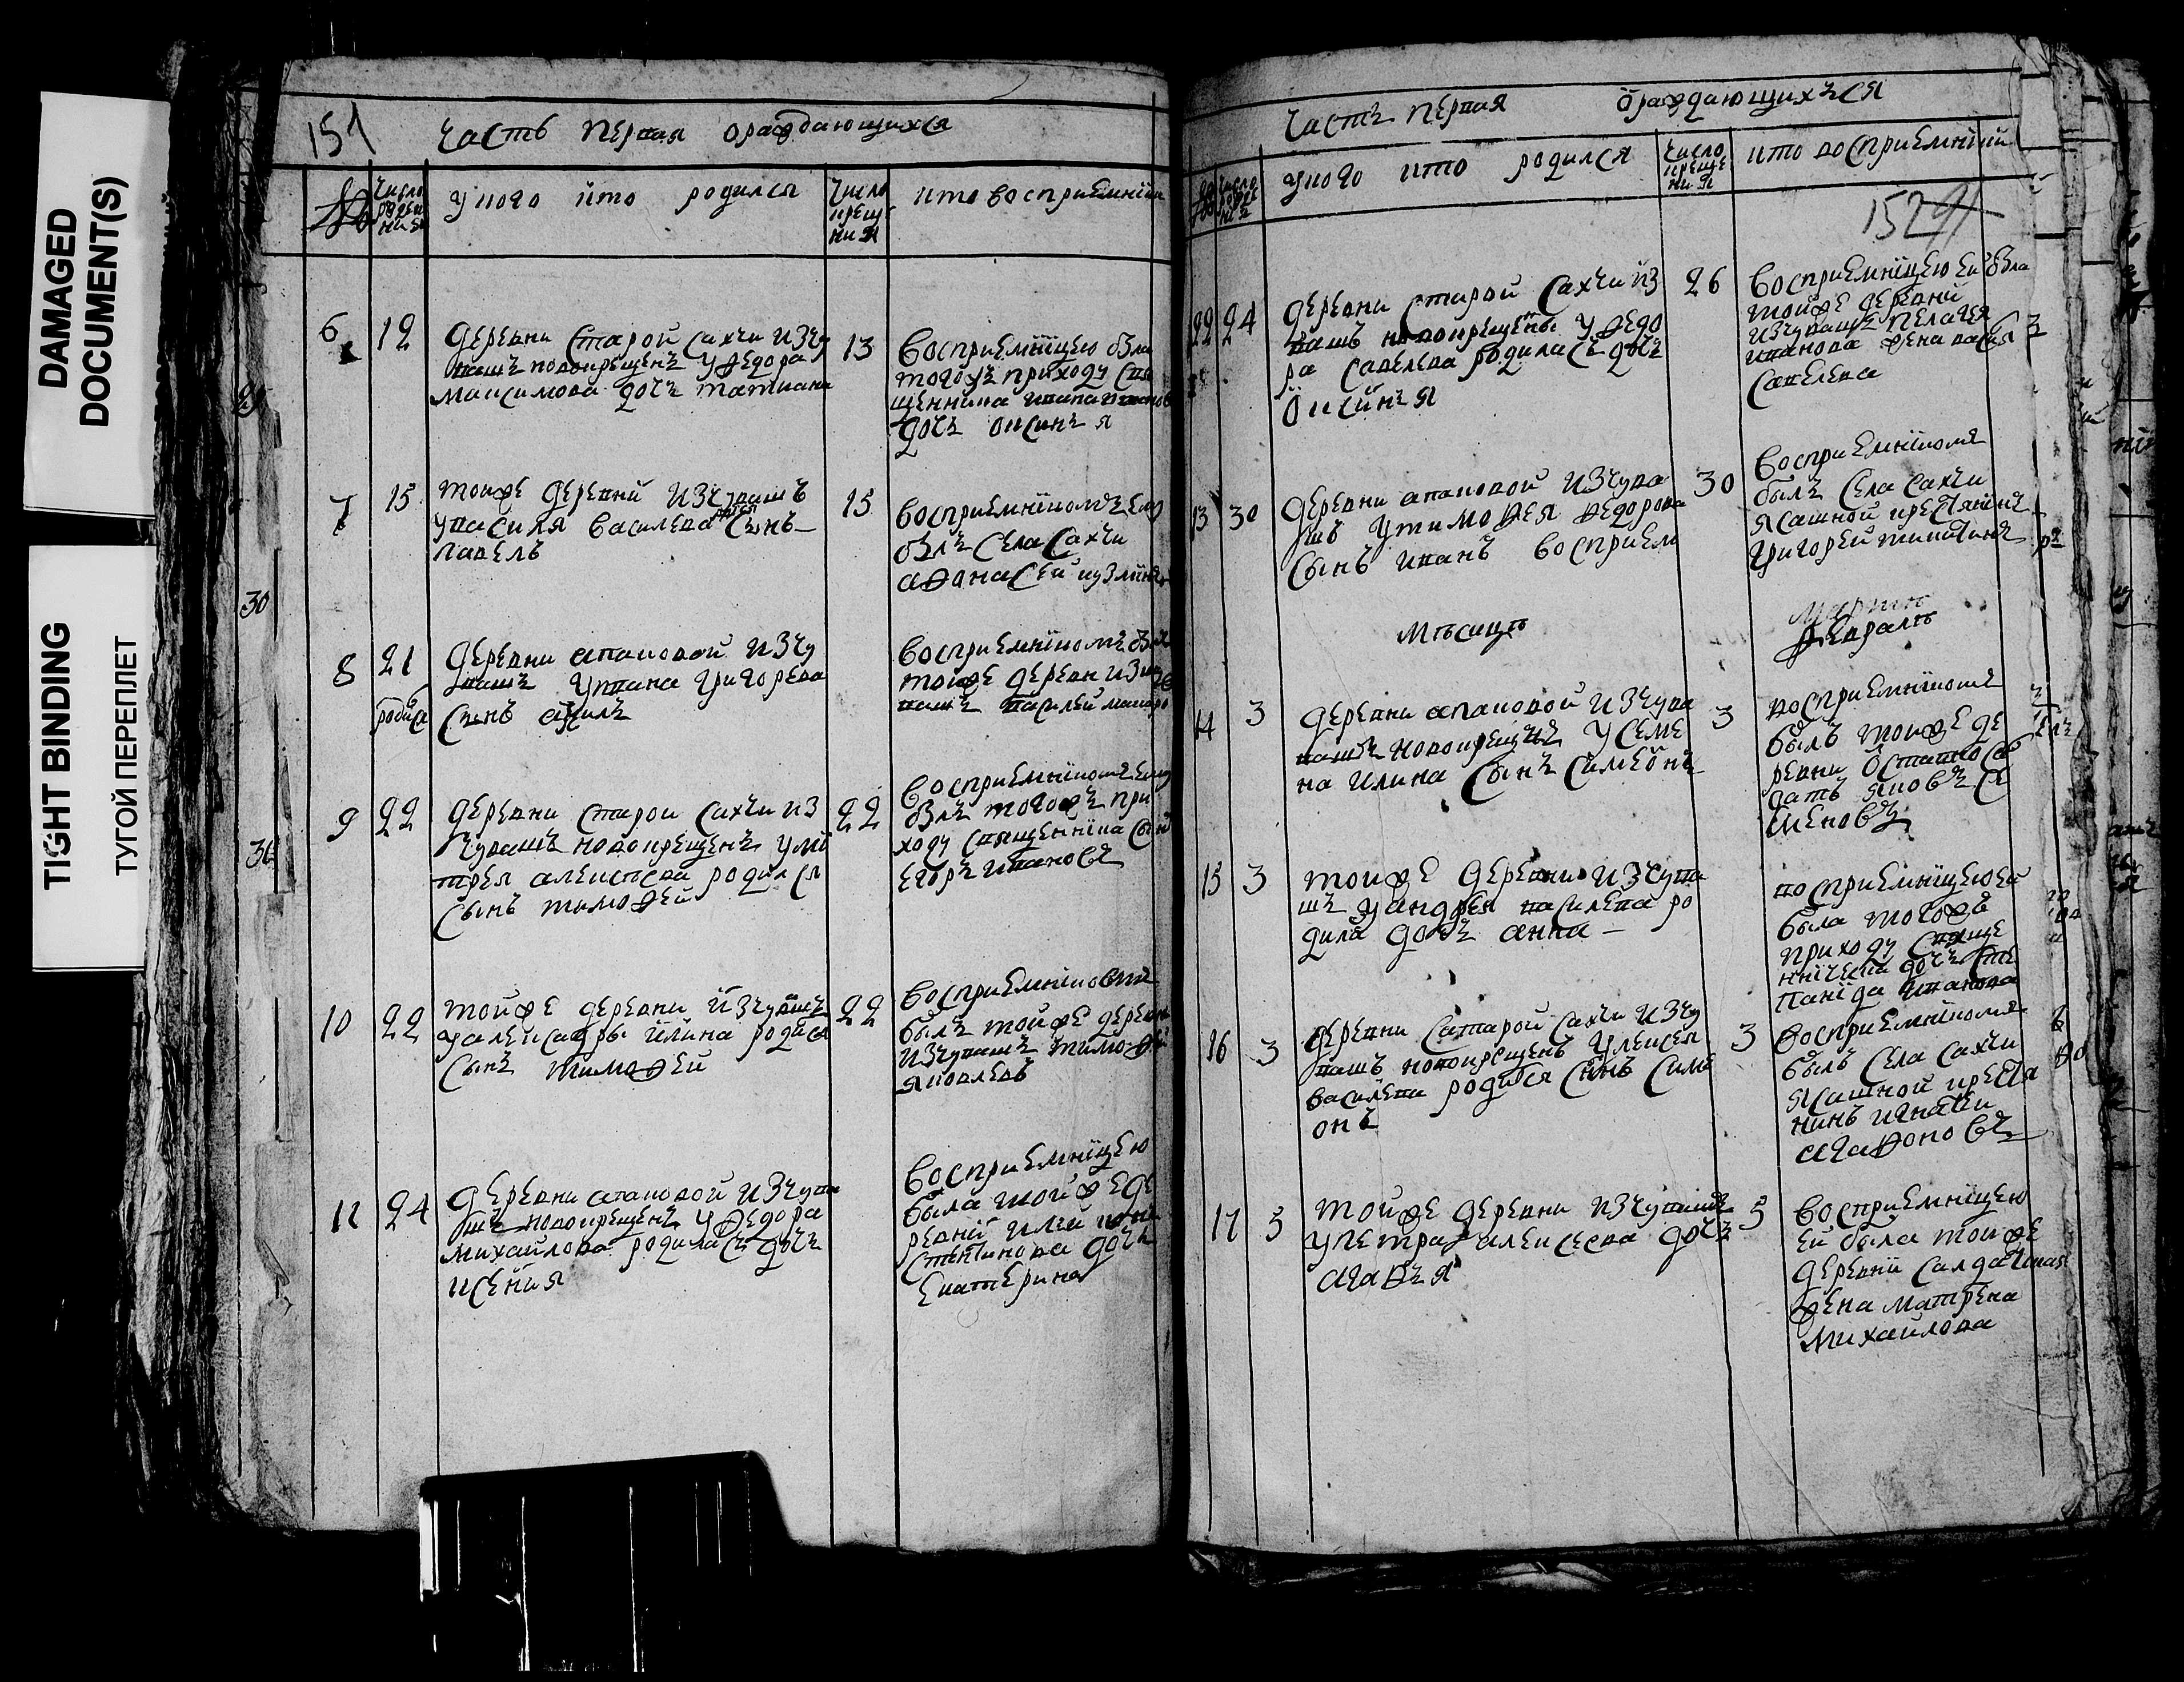 DAMAGED
DOCUMENT(S)
TIGHT BINDING
ТУГОЙ ПЕРЕПЛЕТ
29
30
31
151 часть первая ораждающихся
№ число рожде ни я у кого кто родился число креще ния кто восприемники
6 12 деревни старой сахчи изчу
вашъ новокрещенъ уѲедора
максимова дочь татиана
13 восприемницею была
тогожъ приходу свя
щенника ивана
дочь оксинья
7 15 тойже деревни изчувашъ
увасилья васильева сынъ
павелъ
15 восприемникомъ ему
былъ села сахчи
аѲонасей
8 21 деревни апаковой изчу
вашъ увана григорева
родися сынъ
восприемникомъ былъ
тойже деревни
вашъ василей
9 22 деревни старои сахчи из
чувашъ новокрещенъ уми
трея алексѣева родился
сынъ тимоѲей
22 восприемникомъ ему
былъ тогожъ при
ходу священника сынъ
егоръ ивановъ
10 22 тойже деревни изчувашъ
уалександры илина родися
сынъ тимоѲей
22 восприемникомъ
былъ тойже деревни
изчувашъ тимоѲей
яковлевъ
11 24 деревни апаковой изчува
шъ новокрещенъ уѲедора
михайлова родилась дочь
ксения
восприемницею
была тойже де
ревни
стентинова дочь
екатерина
часть первая ораждающихъся
число рожде ния у кого кто родился число креще ни я кто восприемники
152
22 24 деревни старой сахчи из
вашъ новокрещены уѲедо
ра савелева родилась дочь
оксинья
26 восприемницею ей была
тойже деревни
изчувашъ пелагея
иванова жена васия
савелева
13 30 деревни апаковой изчува
шъ утимоѲея Ѳедорова
сынъ иванъ восприем
30 восприемникомъ
былъ села сахчи
ясашной крестянинъ
григорей
мѣсицъ Ѳевраль
14 3 деревни апаковой изчува
вашъ новокрещенъ усеме
на илина сынъ симеонъ
3 восприемникомъ
былъ тойже де
ревни отставной сол
датъ яковъ се
меновъ
15 3 тойже деревни изчува
шъ уандрея василева ро
дила дочь анна
восприемницею ей
была тогожъ
приходу священ
ническа дочь сте
панида иванова
16 3 деревни сатарой сахчи изчу
вашъ новокрещенъ улексея
василева родился сынъ симе
онъ
3 восприемникомъ
былъ села сахчи
ясашной креста
нинъ игнатеи
агаѲоновъ
17 5 тойже деревни изчувашъ
упетра алексеева дочь
агаѲья
5 восприемницею
ей была тойже
деревни салдатская
жена матрена
михайлова